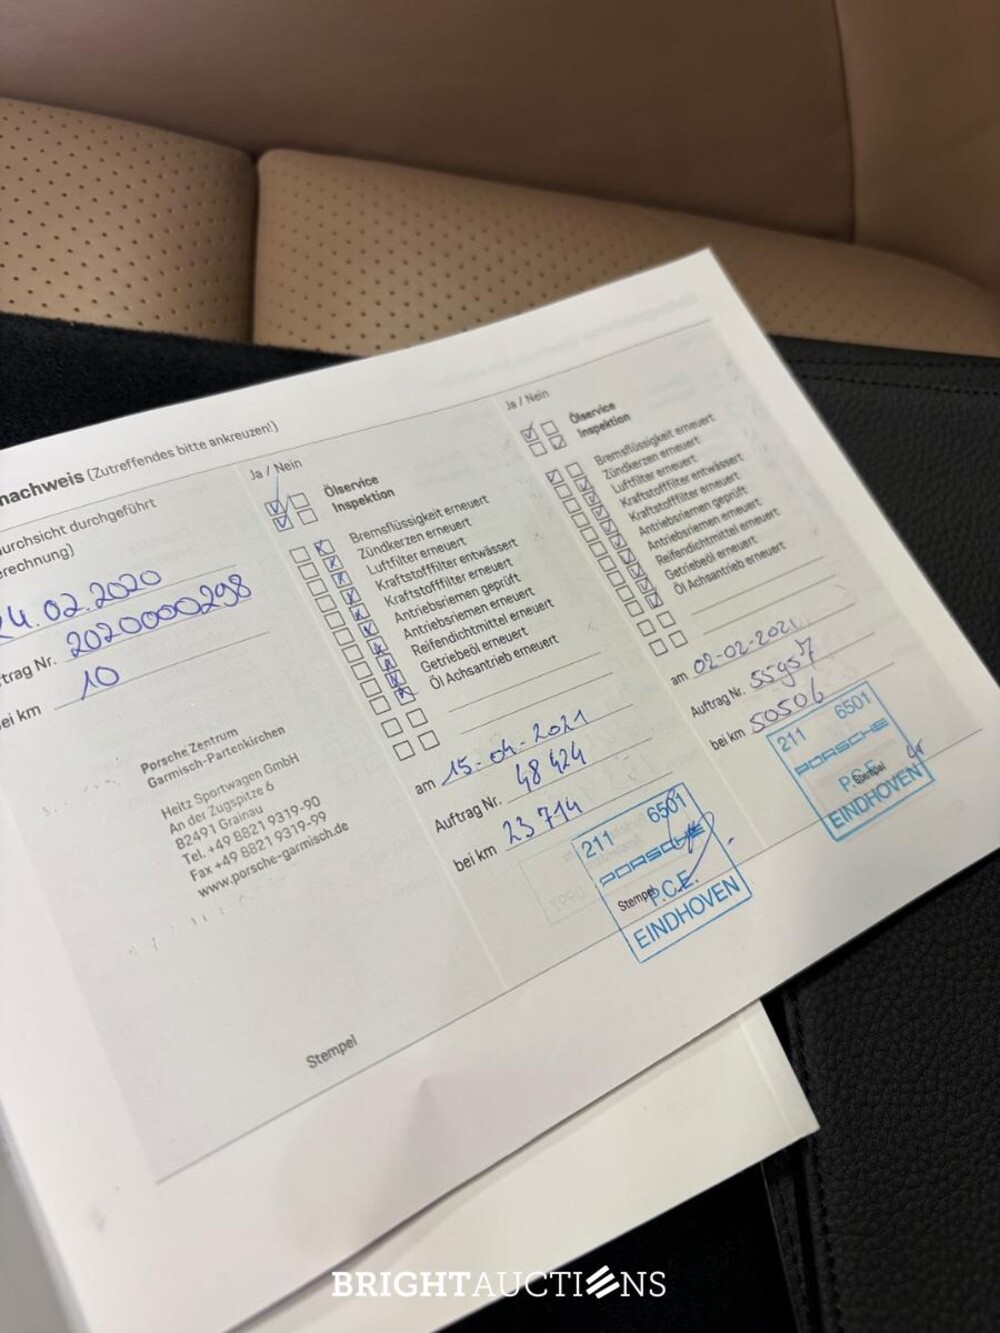 nachweis (Zutreffendes bitte ankreuzen!)
durchsicht durchgeführt
24.02.2020
2020000298
10
ei km
Porsche Zentrum
Garmisch-Partenkirchen
Heitz Sportwagen GmbH
An der Zugspitze 6
82491 Grainau
Tel. +49 8821 9319-90
Fax +49 8821 9319-99
www.porsche-garmisch.de
Stempel
Ja / Nein
Ölservice
Inspektion
Bremsflüssigkeit erneuert
Zündkerzen erneuert
Luftfilter erneuert
Kraftstofffilter entwässert
Kraftstofffilter erneuert
Antriebsriemen geprüft
Antriebsriemen erneuert
Reifendichtmittel erneuert
Getriebeöl erneuert
Öl Achsantrieb erneuert
am 15-04-2021
Auftrag Nr. 48424
bei km 23714
211 6501
PORSCHE
Stempel
P.C.E.
EINDHOVEN
Ja / Nein
Ölservice
Inspektion
Bremsflüssigkeit erneuert
Zündkerzen erneuert
Luftfilter erneuert
Kraftstofffilter entwässert
Kraftstofffilter erneuert
Antriebsriemen geprüft
Antriebsriemen erneuert
Reifendichtmittel erneuert
Getriebeöl erneuert
Öl Achsantrieb erneuert
am 02-02-2021
Auftrag Nr. 55957
bei km 50506
211 6501
PORSCHE
Stempel
EINDHOVEN
BRIGHTAUCTIONS